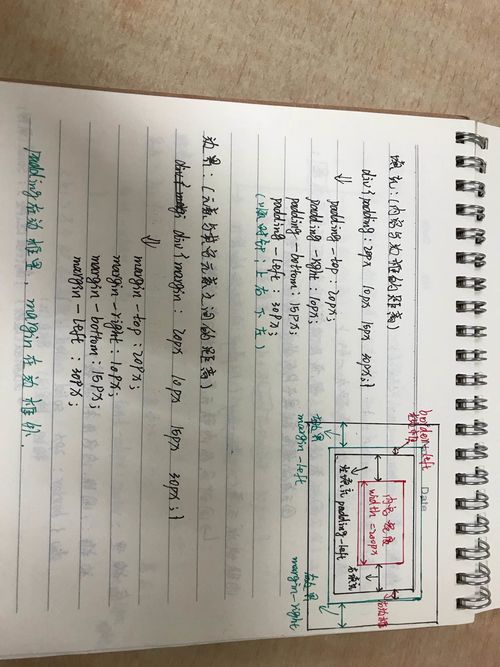 填充：(内容与边框的距离)
div{padding：20px 10px 15px 30px;}
padding-top：20px;
padding-right：10px;
padding-bottom：15px;
padding-left：30px;
(顺时针：上右下左)
边界：(元素与其他元素之间的距离)
div{margin： 20px 10px 15px 30px;}
margin-top：20px;
margin-right：10px;
margin-bottom：15px;
margin-left：30px;
padding在边框里，margin在边框外.
Date
border-left
左边框
内容宽度
width=200px
左填充 padding-left
右填充
右边框
左边界
margin-left
右边界
margin-right